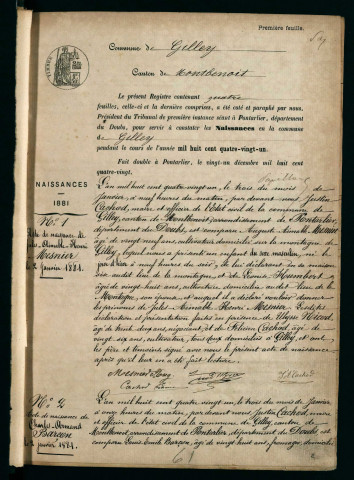 Première feuille.
Commune de Gilley
Canton de Montbenoit
Le présent Registre contenant quatre
feuilles, celle-ci et la dernière comprises, a été coté et paraphé par nous,
Président du Tribunal de première instance séant à Pontarlier, département
du Doubs, pour servir à constater les Naissances en la commune
de Gilley
pendant le cours de l'année mil huit cent quatre-vingt-un.
Fait double à Pontarlier, le vingt-un décembre mil huit cent
quatre-vingt.
NAISSANCES
1881
N° 1
Acte de naissance de
Jules Aimable Henri
Mesnier
le 2 janvier 1881.
L'an mil huit cent quatre-vingt-un, le trois du mois de
Janvier, à neuf heures du matin, par devant nous Justin
Cachod, maire et officier de l'état civil de la commune de
Gilley, canton de Montbenoit, arrondissement de Pontarlier,
département du Doubs, est comparu Auguste Aimable Mesnier
âgé de vingt neuf ans, cultivateur domicilié sur la montagne
de Gilley, lequel nous a présenté un enfant du sexe masculin, né
heures du soir, de lui déclarant en sa maison
sise audit lieu de la montagne, et de Humbert
âgée de vingt huit ans, cultivatrice domiciliée audit lieu de la
Montagne, son épouse, et auquel il a déclaré vouloir donner
les prénoms de Jules Aimable Henri Mesnier. Lesdites
déclaration et présentation faites en présence de Nicod,
âgé de trente deux ans, négociant, et de Cachod, âgé de
vingt six ans, cultivateur, tous deux domiciliés à Gilley, et ont
les père et témoins signé avec nous le présent acte de naissance
après qu'il leur en a été fait lecture.
J. Cachod
N° 2
Acte de naissance de
Charles Armand
Barçon
janvier 1881.
L'an mil huit cent quatre-vingt-un, le trois du mois de Janvier
à onze heures du matin, par devant nous Justin Cachod, maire
et officier de l'état civil de la commune de Gilley, canton de
Montbenoit, arrondissement de Pontarlier, département du Doubs, est
comparu Louis Emile Barçon, âgé de vingt huit ans, fromager, domicilié
61